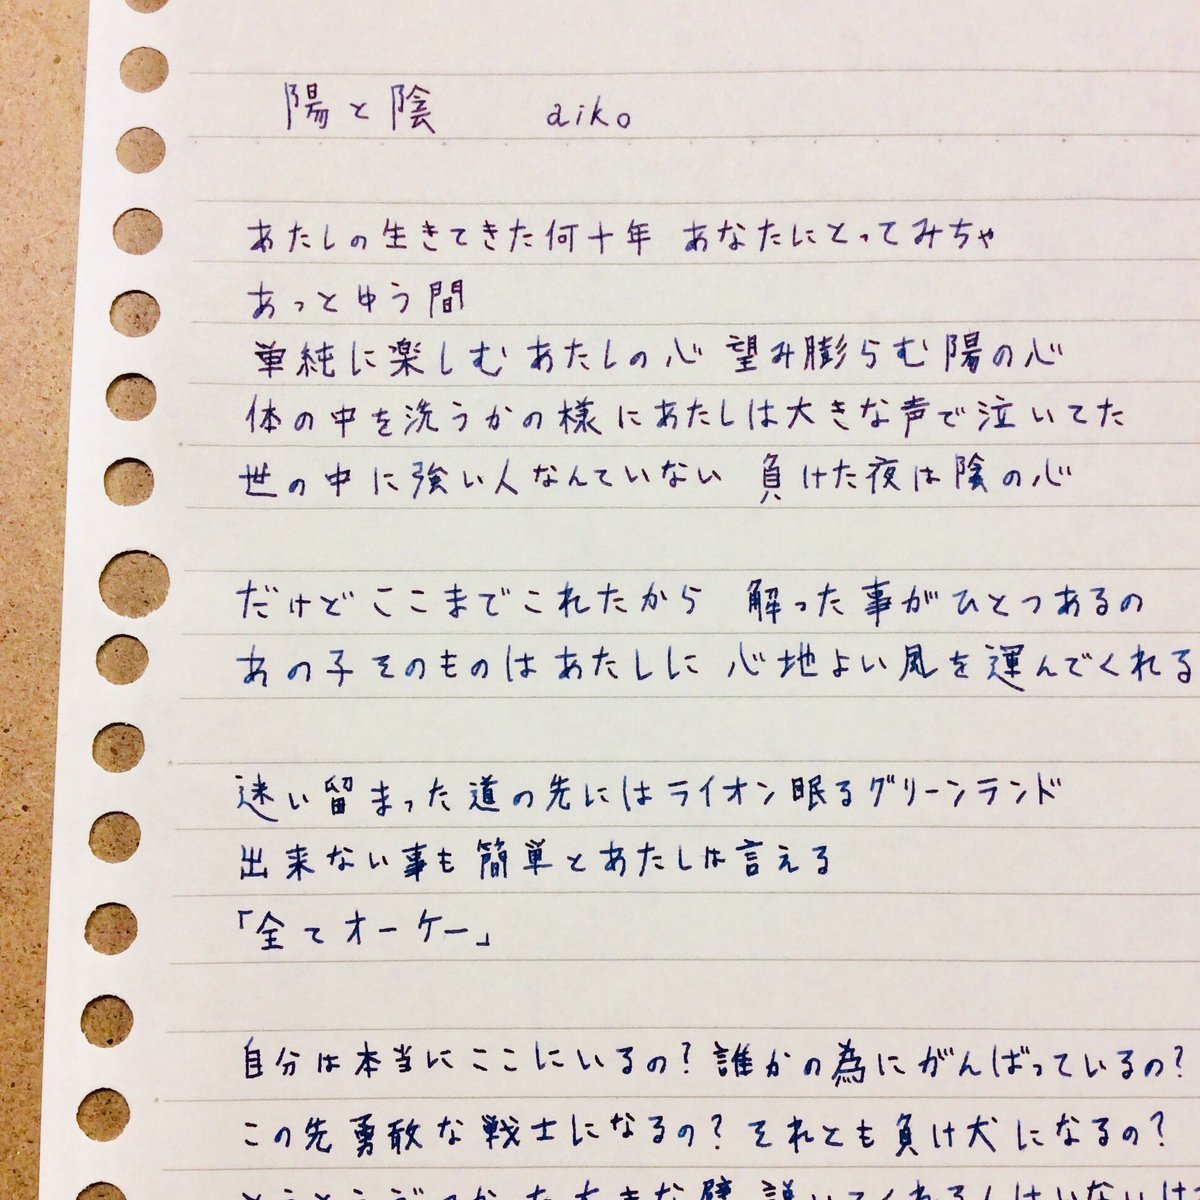 陽と陰 aiko
あたしの生きてきた何十年 あなたにとってみちゃ
あっとゆう間
単純に楽しむあたしの心 望み膨らむ陽の心
体の中を洗うかの様にあたしは大きな声で泣いてた
世の中に強い人なんていない 負けた夜は陰の心
だけどここまでこれたから 解った事がひとつあるの
あの子そのものはあたしに 心地よい風を運んでくれる
迷い留まった道の先にはライオン眠るグリーンランド
出来ない事も簡単とあたしは言える
「全てオーケー」
自分は本当にここにいるの?誰かの為にがんばっているの?
この先勇敢な戦士になるの?それとも負け犬になるの?